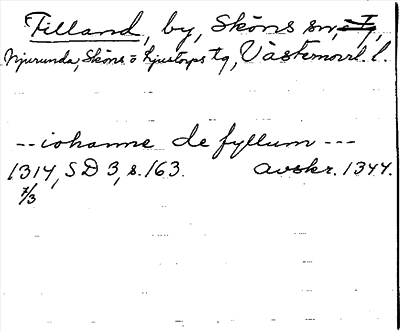 Filland, by, Sköns sn, tg,
Njurunda, Sköns o Ljustorps tg, Västernorrl. l.
-- iohanne de fyllum ---
1314, SD 3, s. 163. avskr. 1344.
7/3